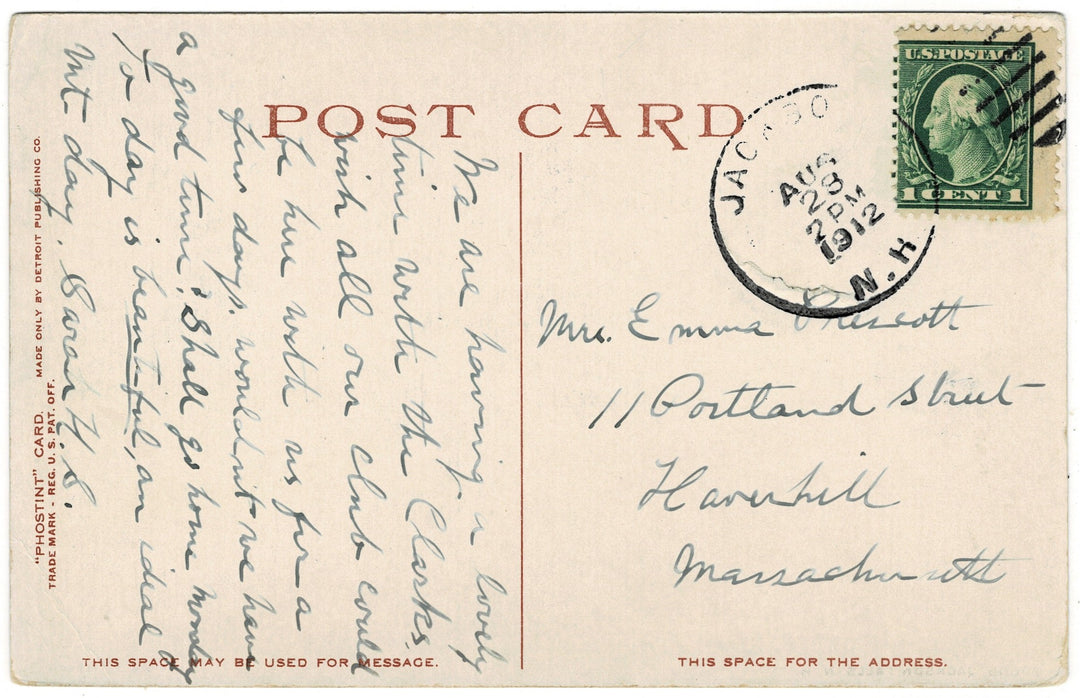 POST CARD
U.S. POSTAGE
1 CENT 1
AUG
28
2 PM
1912
N.H.
We are having a lovely
time with the Clarks.
wish all our club could
be here with us for a
few days. wouldn't we have
a good time? Shall go home Monday
To day is beautiful, an ideal
Mt day. H. S.
Mrs. Emma Prescott
11 Portland Street
Haverhill
Massachusetts
"PHOSTINT" CARD. MADE ONLY BY DETROIT PUBLISHING CO.
TRADE MARK - REG. U. S. PAT. OFF.
THIS SPACE MAY BE USED FOR MESSAGE.
THIS SPACE FOR THE ADDRESS.